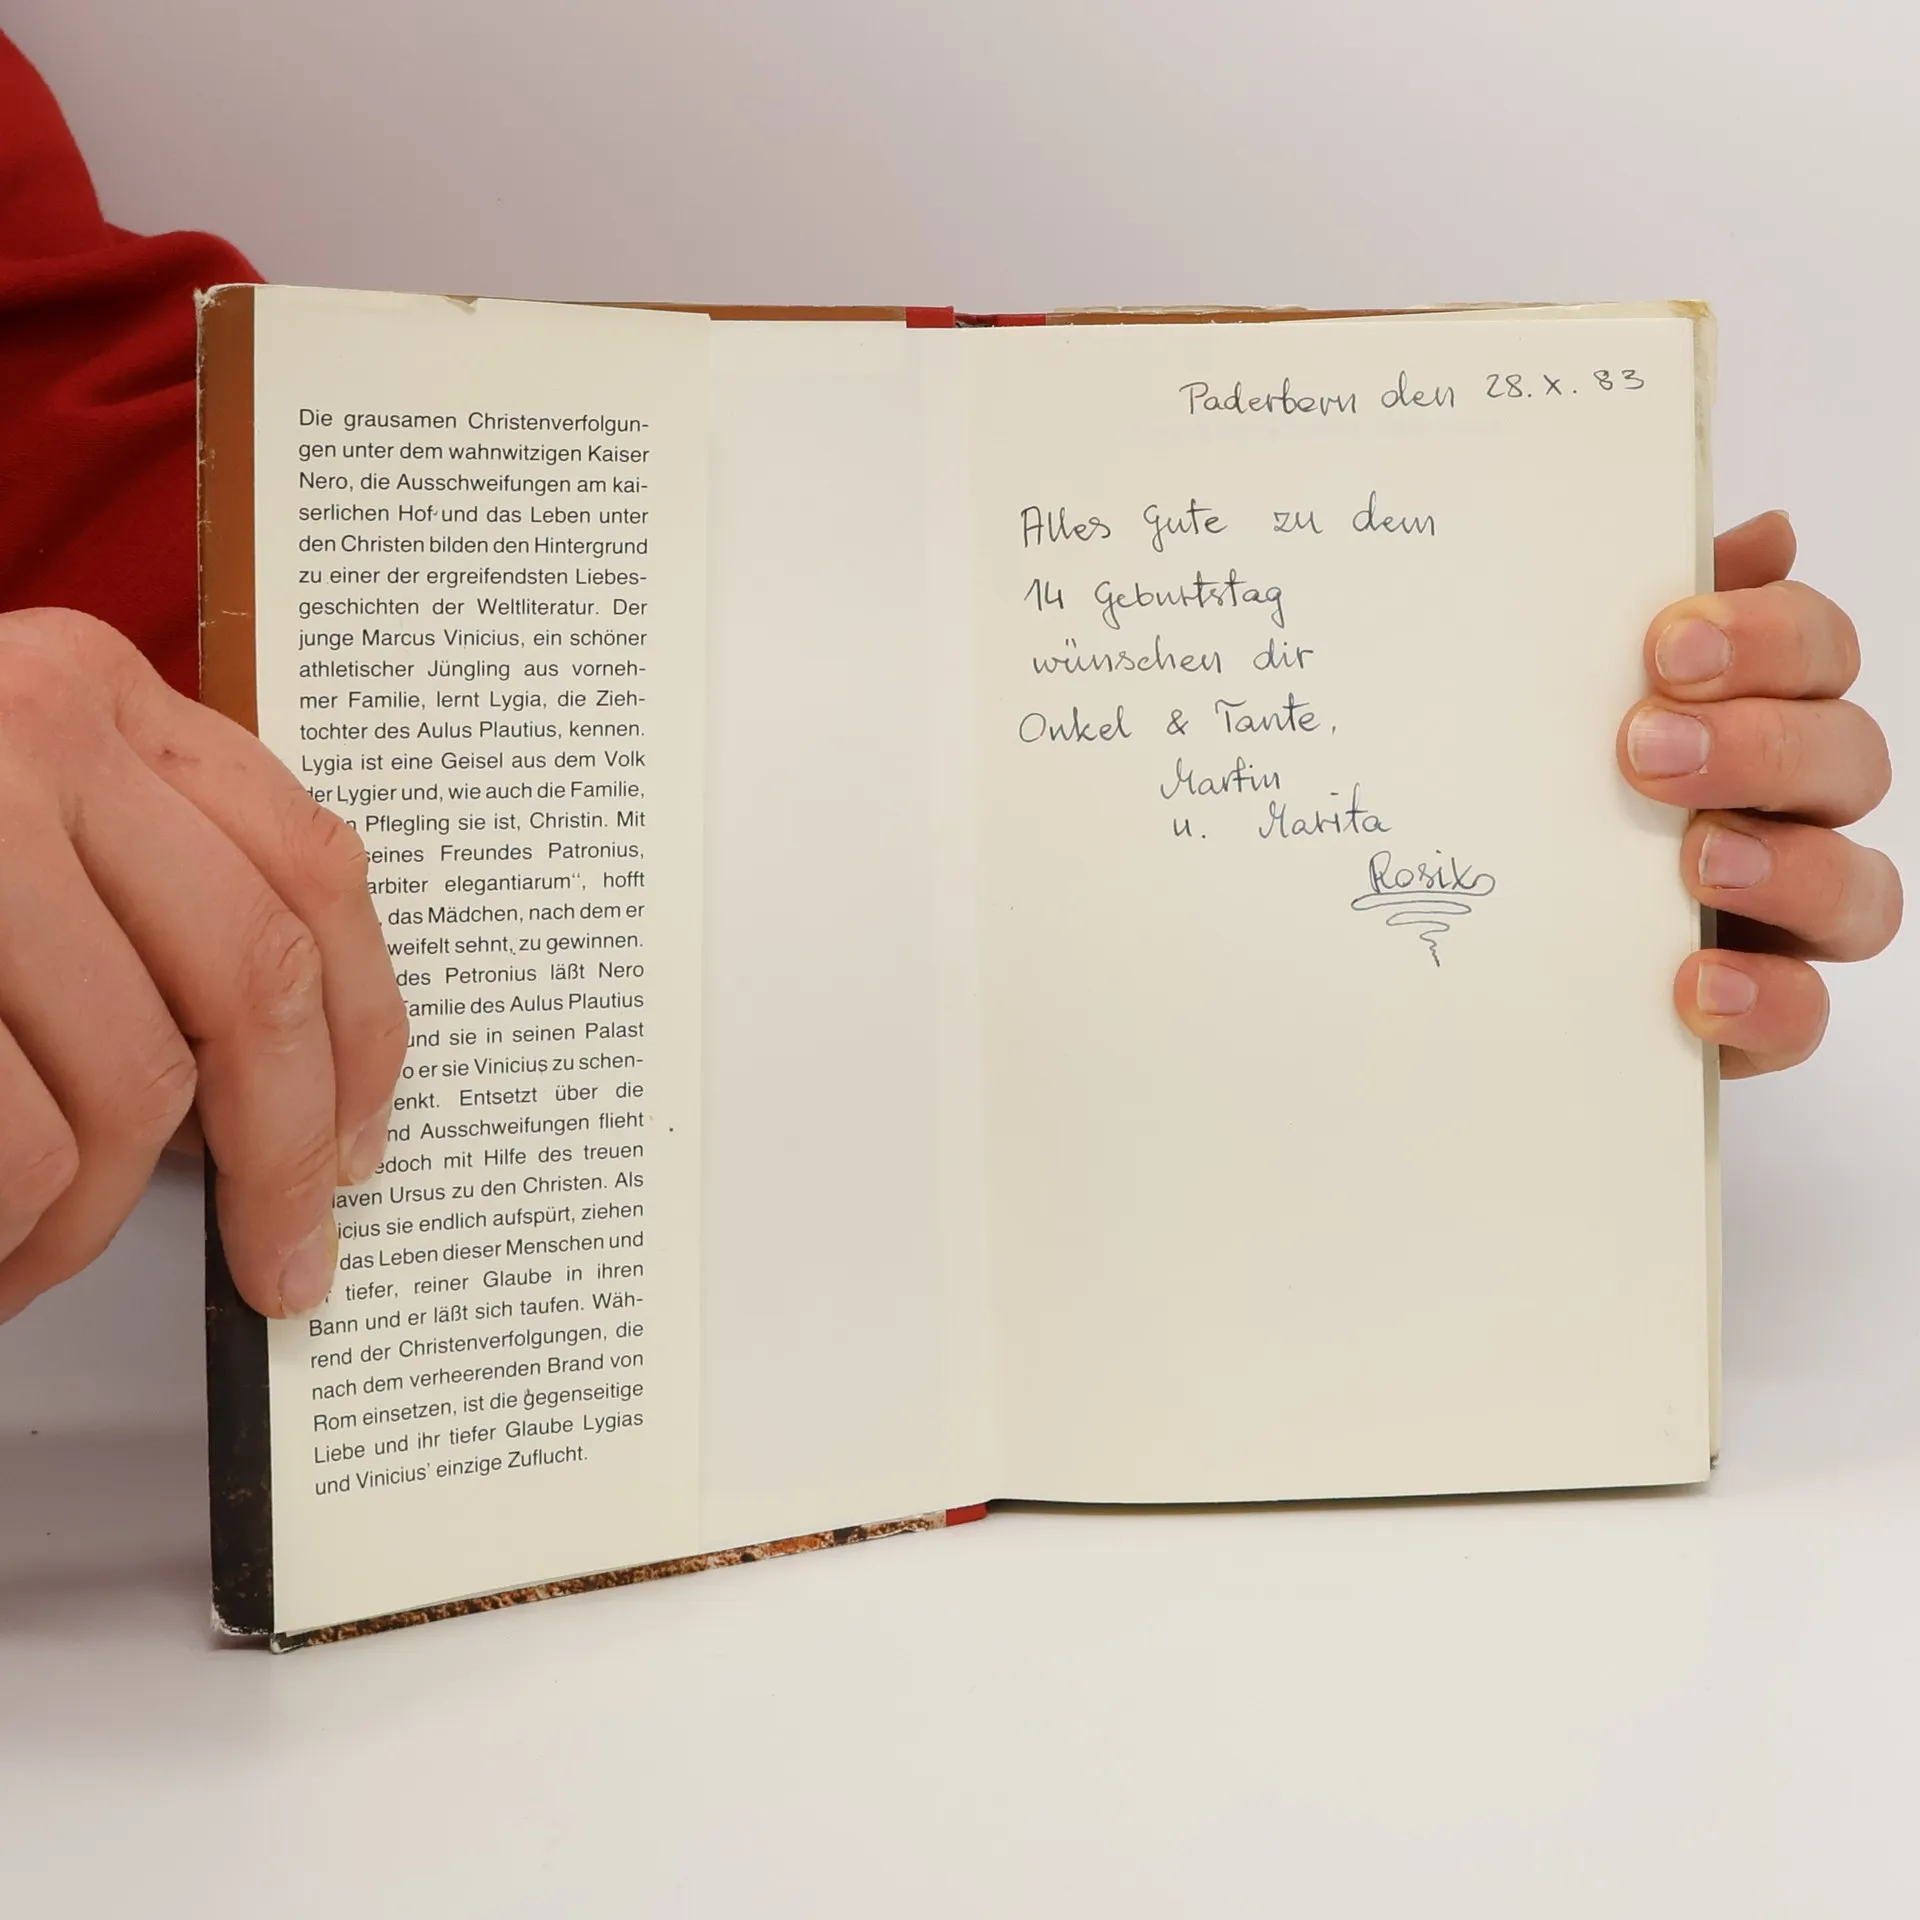 Die grausamen Christenverfolgun-
gen unter dem wahnwitzigen Kaiser
Nero, die Ausschweifungen am kai-
serlichen Hof und das Leben unter
den Christen bilden den Hintergrund
zu einer der ergreifendsten Liebes-
geschichten der Weltliteratur. Der
junge Marcus Vinicius, ein schöner
athletischer Jüngling aus vorneh-
mer Familie, lernt Lygia, die Zieh-
tochter des Aulus Plautius, kennen.
Lygia ist eine Geisel aus dem Volk
der Lygier und, wie auch die Familie,
Pflegling sie ist, Christin. Mit
seines Freundes Patronius,
arbiter elegantiarum“, hofft
, das Mädchen, nach dem er
weifelt sehnt, zu gewinnen.
des Petronius läßt Nero
Familie des Aulus Plautius
und sie in seinen Palast
o er sie Vinicius zu schen-
enkt. Entsetzt über die
nd Ausschweifungen flieht
edoch mit Hilfe des treuen
laven Ursus zu den Christen. Als
icius sie endlich aufspürt, ziehen
das Leben dieser Menschen und
tiefer, reiner Glaube in ihren
Bann und er läßt sich taufen. Wäh-
rend der Christenverfolgungen, die
nach dem verheerenden Brand von
Rom einsetzen, ist die gegenseitige
Liebe und ihr tiefer Glaube Lygias
und Vinicius’ einzige Zuflucht.
Paderborn den 28. X. 83
Alles Gute zu dem
14 Geburtstag
wünschen dir
Onkel & Tante,
Martin
u. Marita
Rosix